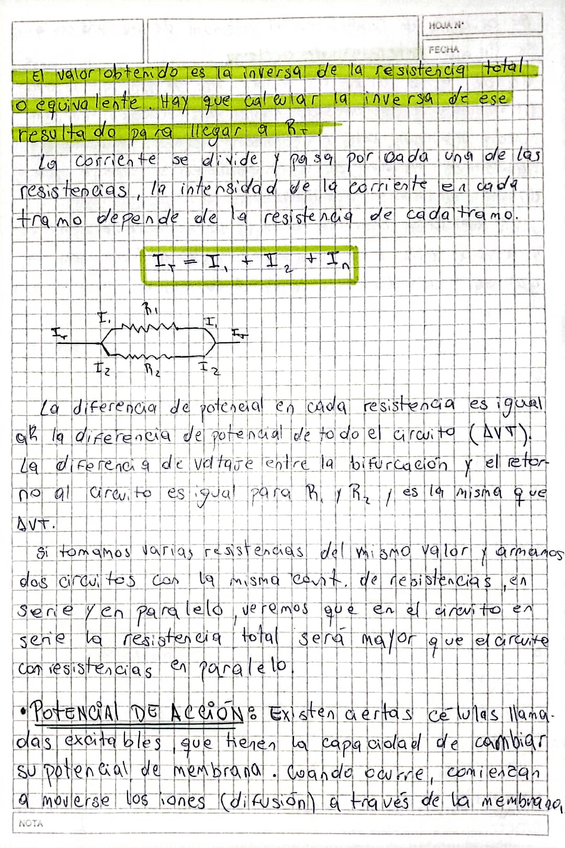 HOJA Nº
FECHA
El valor obtenido es la inversa de la resistencia total
o equivalente. Hay que calcular la inversa de ese
resultado para llegar a RT.
La corriente se divide y pasa por cada una de las
resistencias, la intensidad de la corriente en cada
tramo depende de la resistencia de cada tramo.
IT = I1 + I2 + In
R1
IT I1 I1 IT
I2 R2 I2
La diferencia de potencial en cada resistencia es igual
a la diferencia de potencial de todo el circuito (ΔVT).
La diferencia de voltaje entre la bifurcación y el retor-
no al circuito es igual para R1 y R2 y es la misma que
ΔVT.
Si tomamos varias resistencias del mismo valor y armamos
dos circuitos con la misma cant. de resistencias, en
serie y en paralelo, veremos que en el circuito en
serie la resistencia total será mayor que el circuito
con resistencias en paralelo.
• POTENCIAL DE ACCIÓN: Existen ciertas células llama-
das excitables, que tienen la capacidad de cambiar
su potencial de membrana. Cuando ocurre, comienzan
a moverse los iones (difusión) a través de la membrana,
NOTA